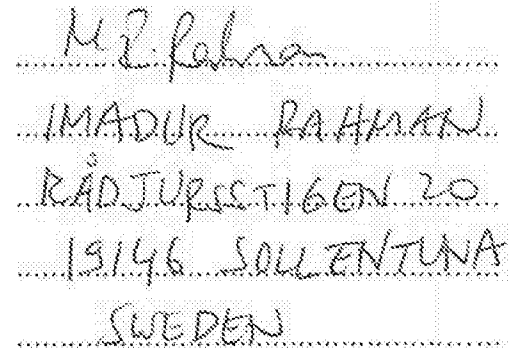 M R. Rahman
IMADUR RAHMAN
RÅDJURSSTIGEN 20
19146 SOLLENTUNA
SWEDEN